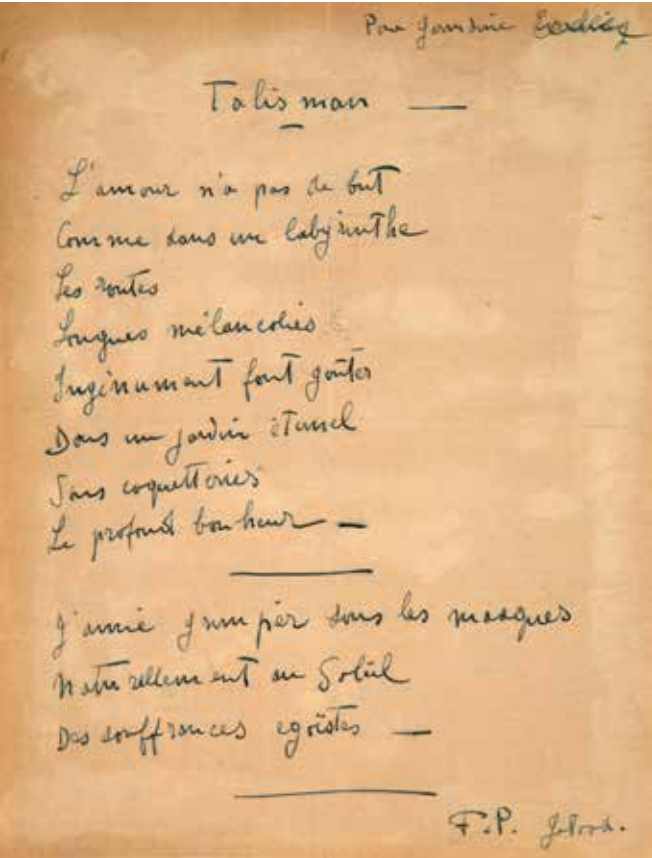 Pour Germaine
Talisman —
L'amour n'a pas de but
Comme dans un labyrinthe
Les routes
Longues mélancolies
Ingénument font goûter
Dans un jardin éternel
Sans coquetteries
Le profond bonheur —
J'aime grimper dans les masques
Naturellement au Soleil
Des souffrances egoïstes —
F.P.